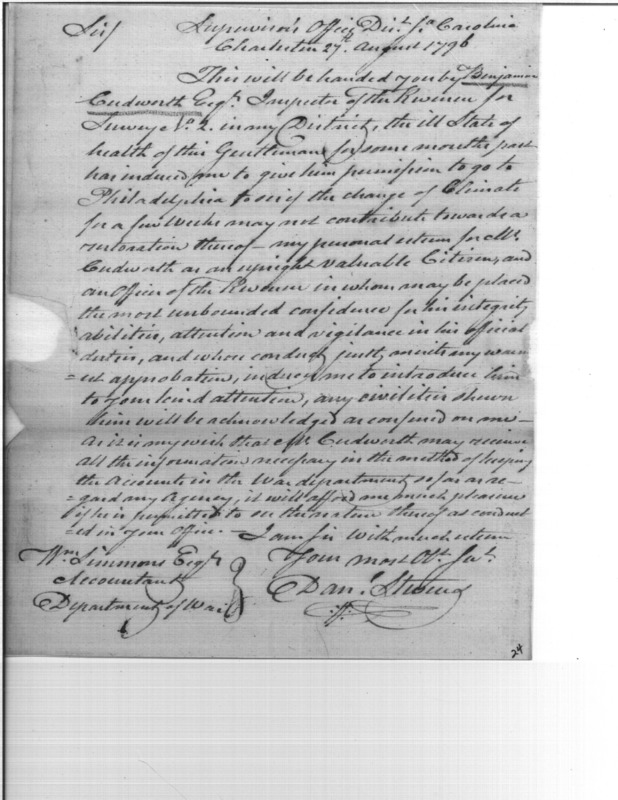 Sir/ Supervisor's Office, Dist. So. Carolina
Charleston 27th. August 1796
This will be handed you by Benjamin
Cudworth Esqr. Inspector of the Revenue for
Survey No. 2. in my District, the ill State of
health of this Gentleman for some months past
has induced me to give him permission to go to
Philadelphia to see if the change of Climate
for a few Weeks may not contribute towards a
restoration thereof - my personal esteem for Mr.
Cudworth as an upright valuable Citizen, and
an Officer of the Revenue in whom may be placed
the most unbounded confidence for his integrity
abilities, attention and vigilance in his official
duties, and whose conduct justly merits my warm
=est approbation, induces me to introduce him
to your kind attention, any civilities shewn
him will be acknowledged as confered on me -
As it is my wish that Mr. Cudworth may receive
all the information necessary in the method of keeping
the Accounts in the War department, so far as re-
=gards my Agency, it will afford me much pleasure
if he is permitted to see the nature thereof as conduct
=ed in your Office. - I am Sir with much esteem
Wm. Simmons Esqr. Your most Ob. Sert.
Accountant Danl. Stevens
Department of War
24